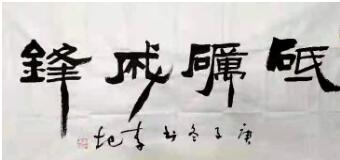 砥礪成鋒
庚子冬书李杞